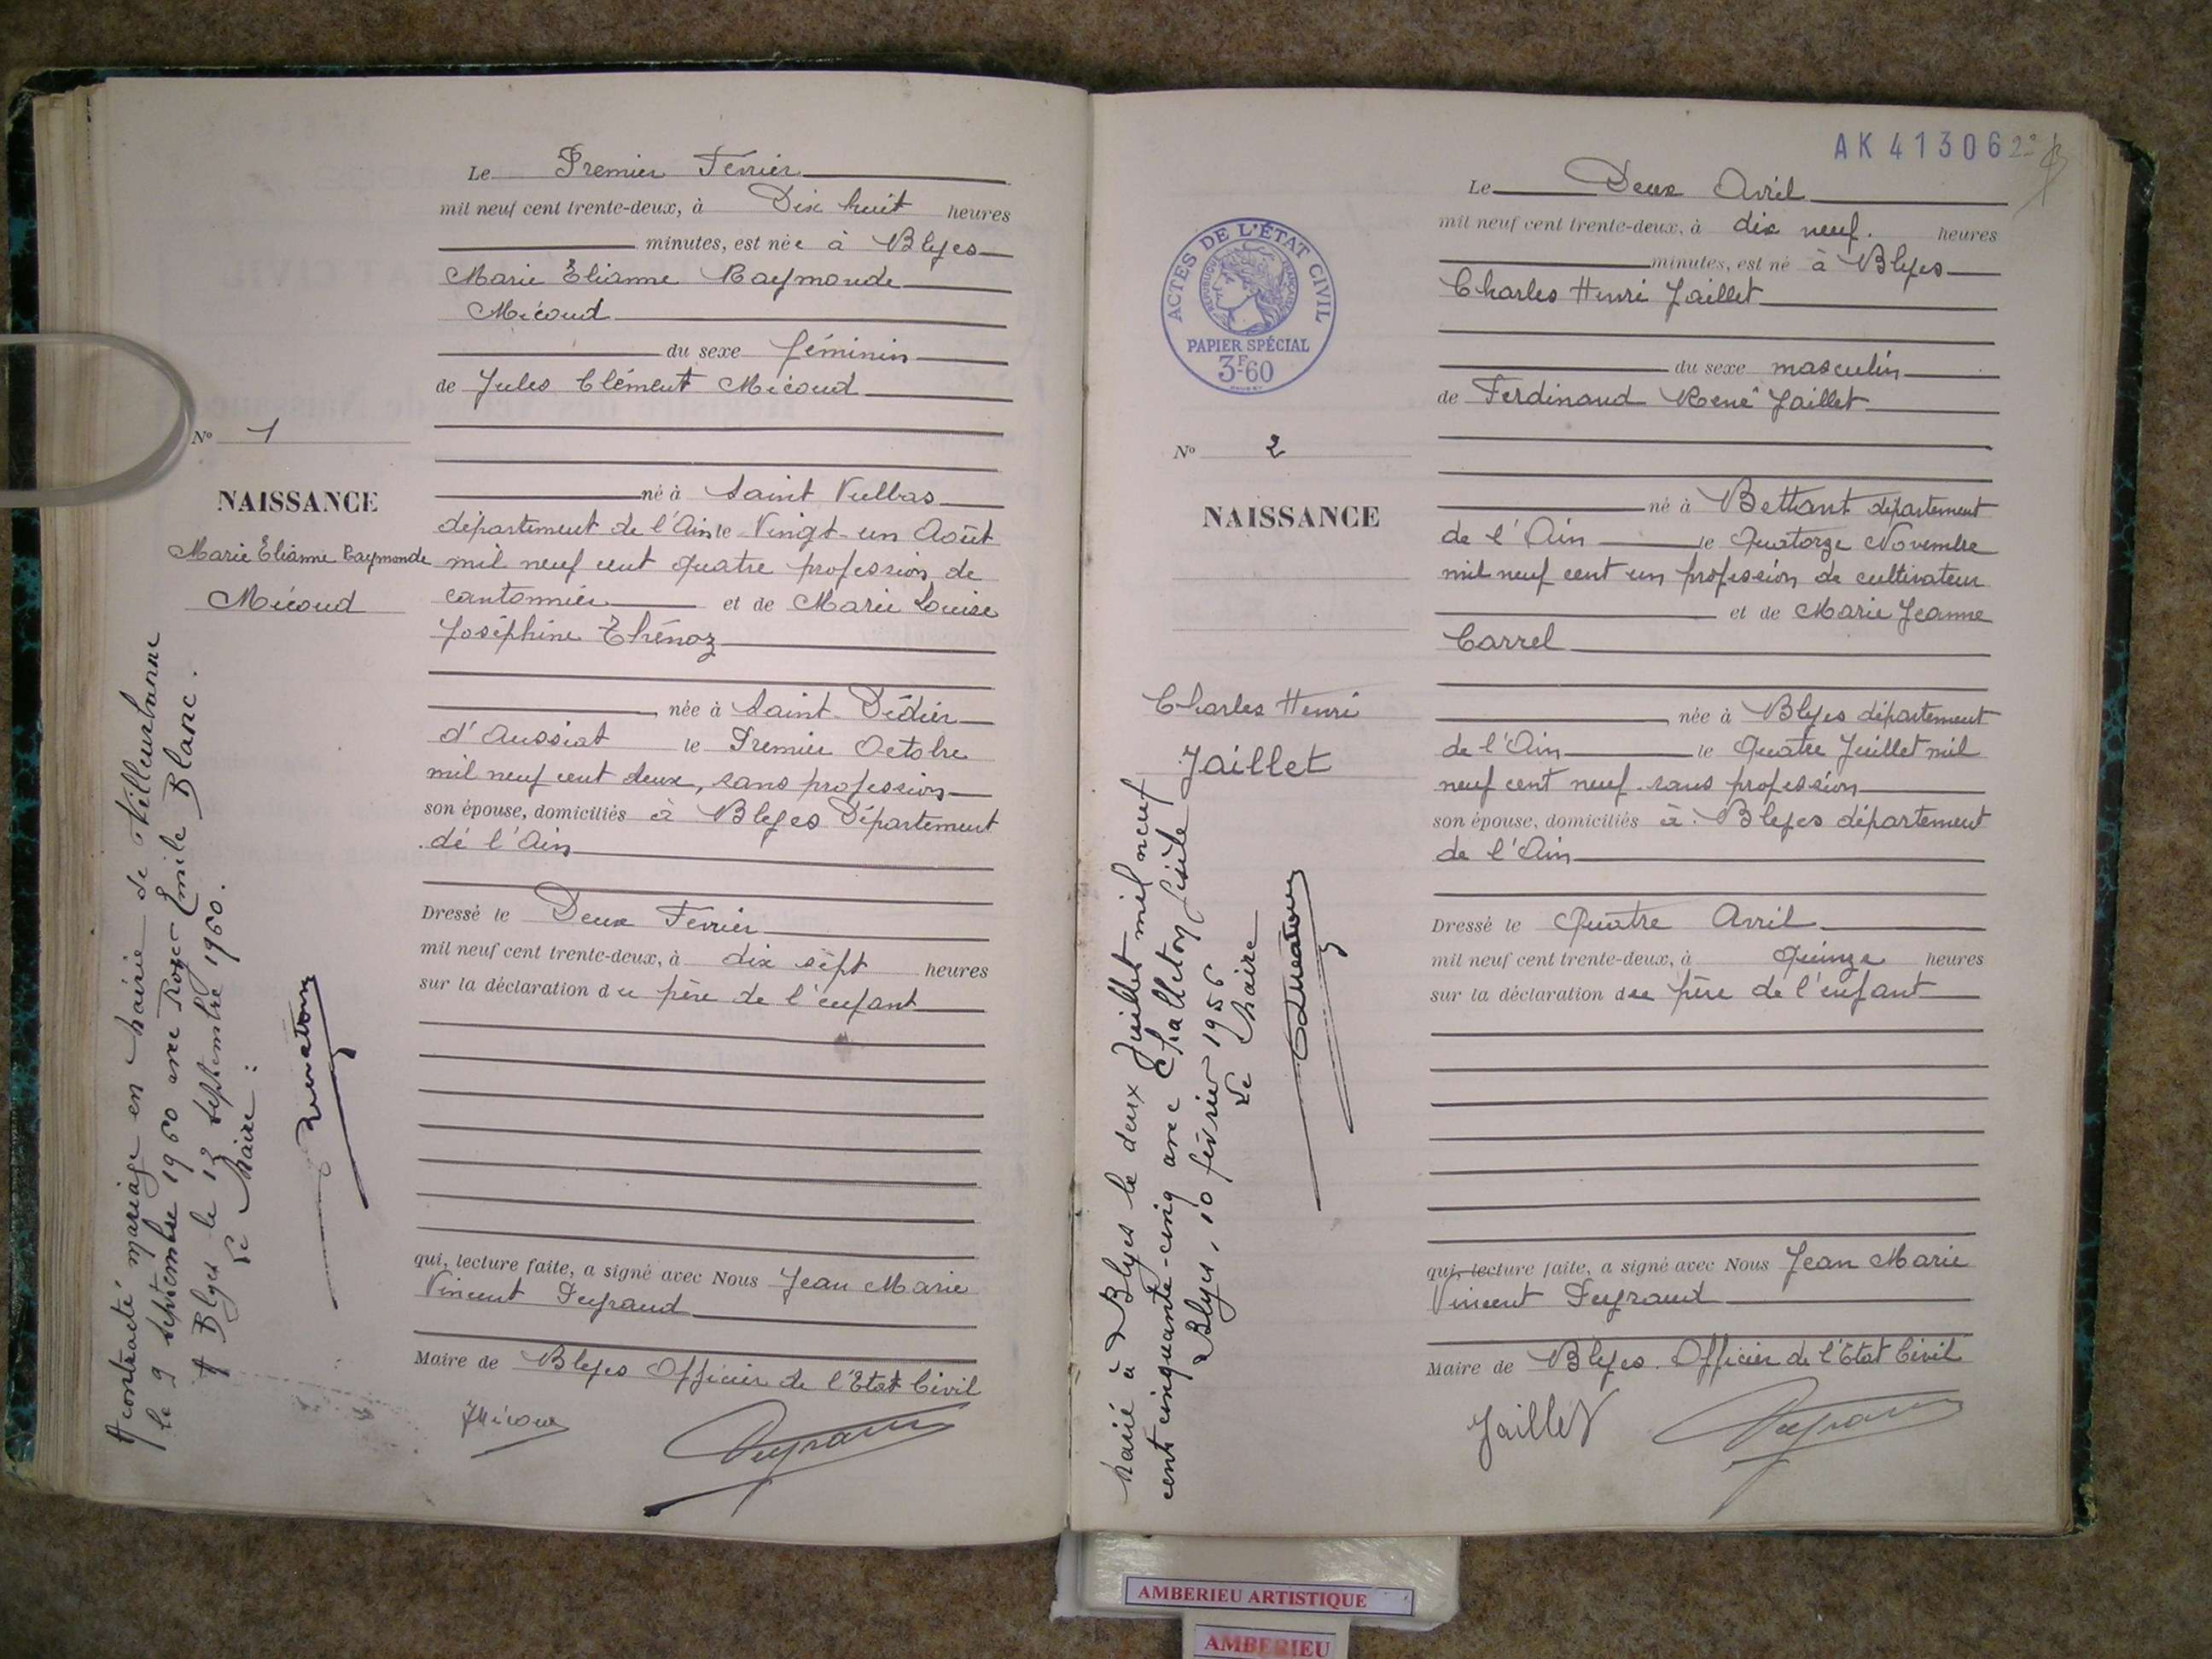 Le Premier Fevrier
mil neuf cent trente-deux, à Dix huit heures
minutes, est née à Blyes
Marie Elianne Raymonde
Micoud
du sexe féminin
de Jules Clément Micoud
Nº 1
NAISSANCE
Marie Elianne Raymonde
Micoud
né à Saint Vulbas
département de l'Ain le Vingt-un Août
mil neuf cent quatre profession de
cantonnier et de Marie Louise
Joséphine Thénoz
née à Saint Didier
d'Aussiat le Premier Octobre
mil neuf cent deux, sans profession
son épouse, domiciliés à Blyes Département
de l'Ain
Dressé le Deux Fevrier
mil neuf cent trente-deux, à dix sept heures
sur la déclaration du père de l'enfant
qui, lecture faite, a signé avec Nous Jean Marie
Vincent Peyraud
Maire de Blyes Officier de l'Etat Civil
JMicoud
Peyraud
A contracté mariage en Mairie de Villeurbanne
le 9 septembre 1960 avec Roger Emile Blanc.
A Blyes le 12 septembre 1960.
Le Maire :
AK 41306
Le Deux Avril
mil neuf cent trente-deux, à dix neuf. heures
minutes, est né à Blyes
Charles Henri Jaillet
du sexe masculin
de Ferdinand René Jaillet
ACTES DE L'ÉTAT CIVIL
RÉPUBLIQUE FRANÇAISE
PAPIER SPÉCIAL
3F60
Nº 2
NAISSANCE
Charles Henri
Jaillet
né à Bettant département
de l'Ain le Quatorze Novembre
mil neuf cent un profession de cultivateur
et de Marie Jeanne
Carrel
née à Blyes département
de l'Ain le Quatre Juillet mil
neuf cent neuf sans profession
son épouse, domiciliés à Blyes département
de l'Ain
Dressé le Quatre Avril
mil neuf cent trente-deux, à Quinze heures
sur la déclaration du père de l'enfant
qui, lecture faite, a signé avec Nous Jean Marie
Vincent Peyraud
Maire de Blyes Officier de l'Etat Civil
Jaillet
Peyraud
Marié à Blyes le deux Juillet mil neuf
cent cinquante-cinq avec Challeton
Blyes, 10 février 1956
Le Maire
AMBERIEU ARTISTIQUE
AMBERIEU